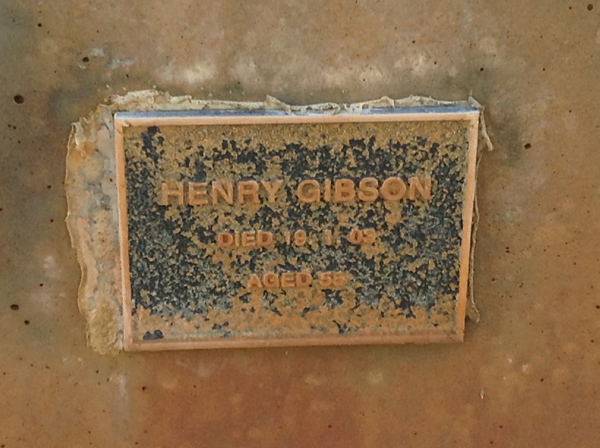 HENRY GIBSON
DIED 19. 1. 09
AGED 58